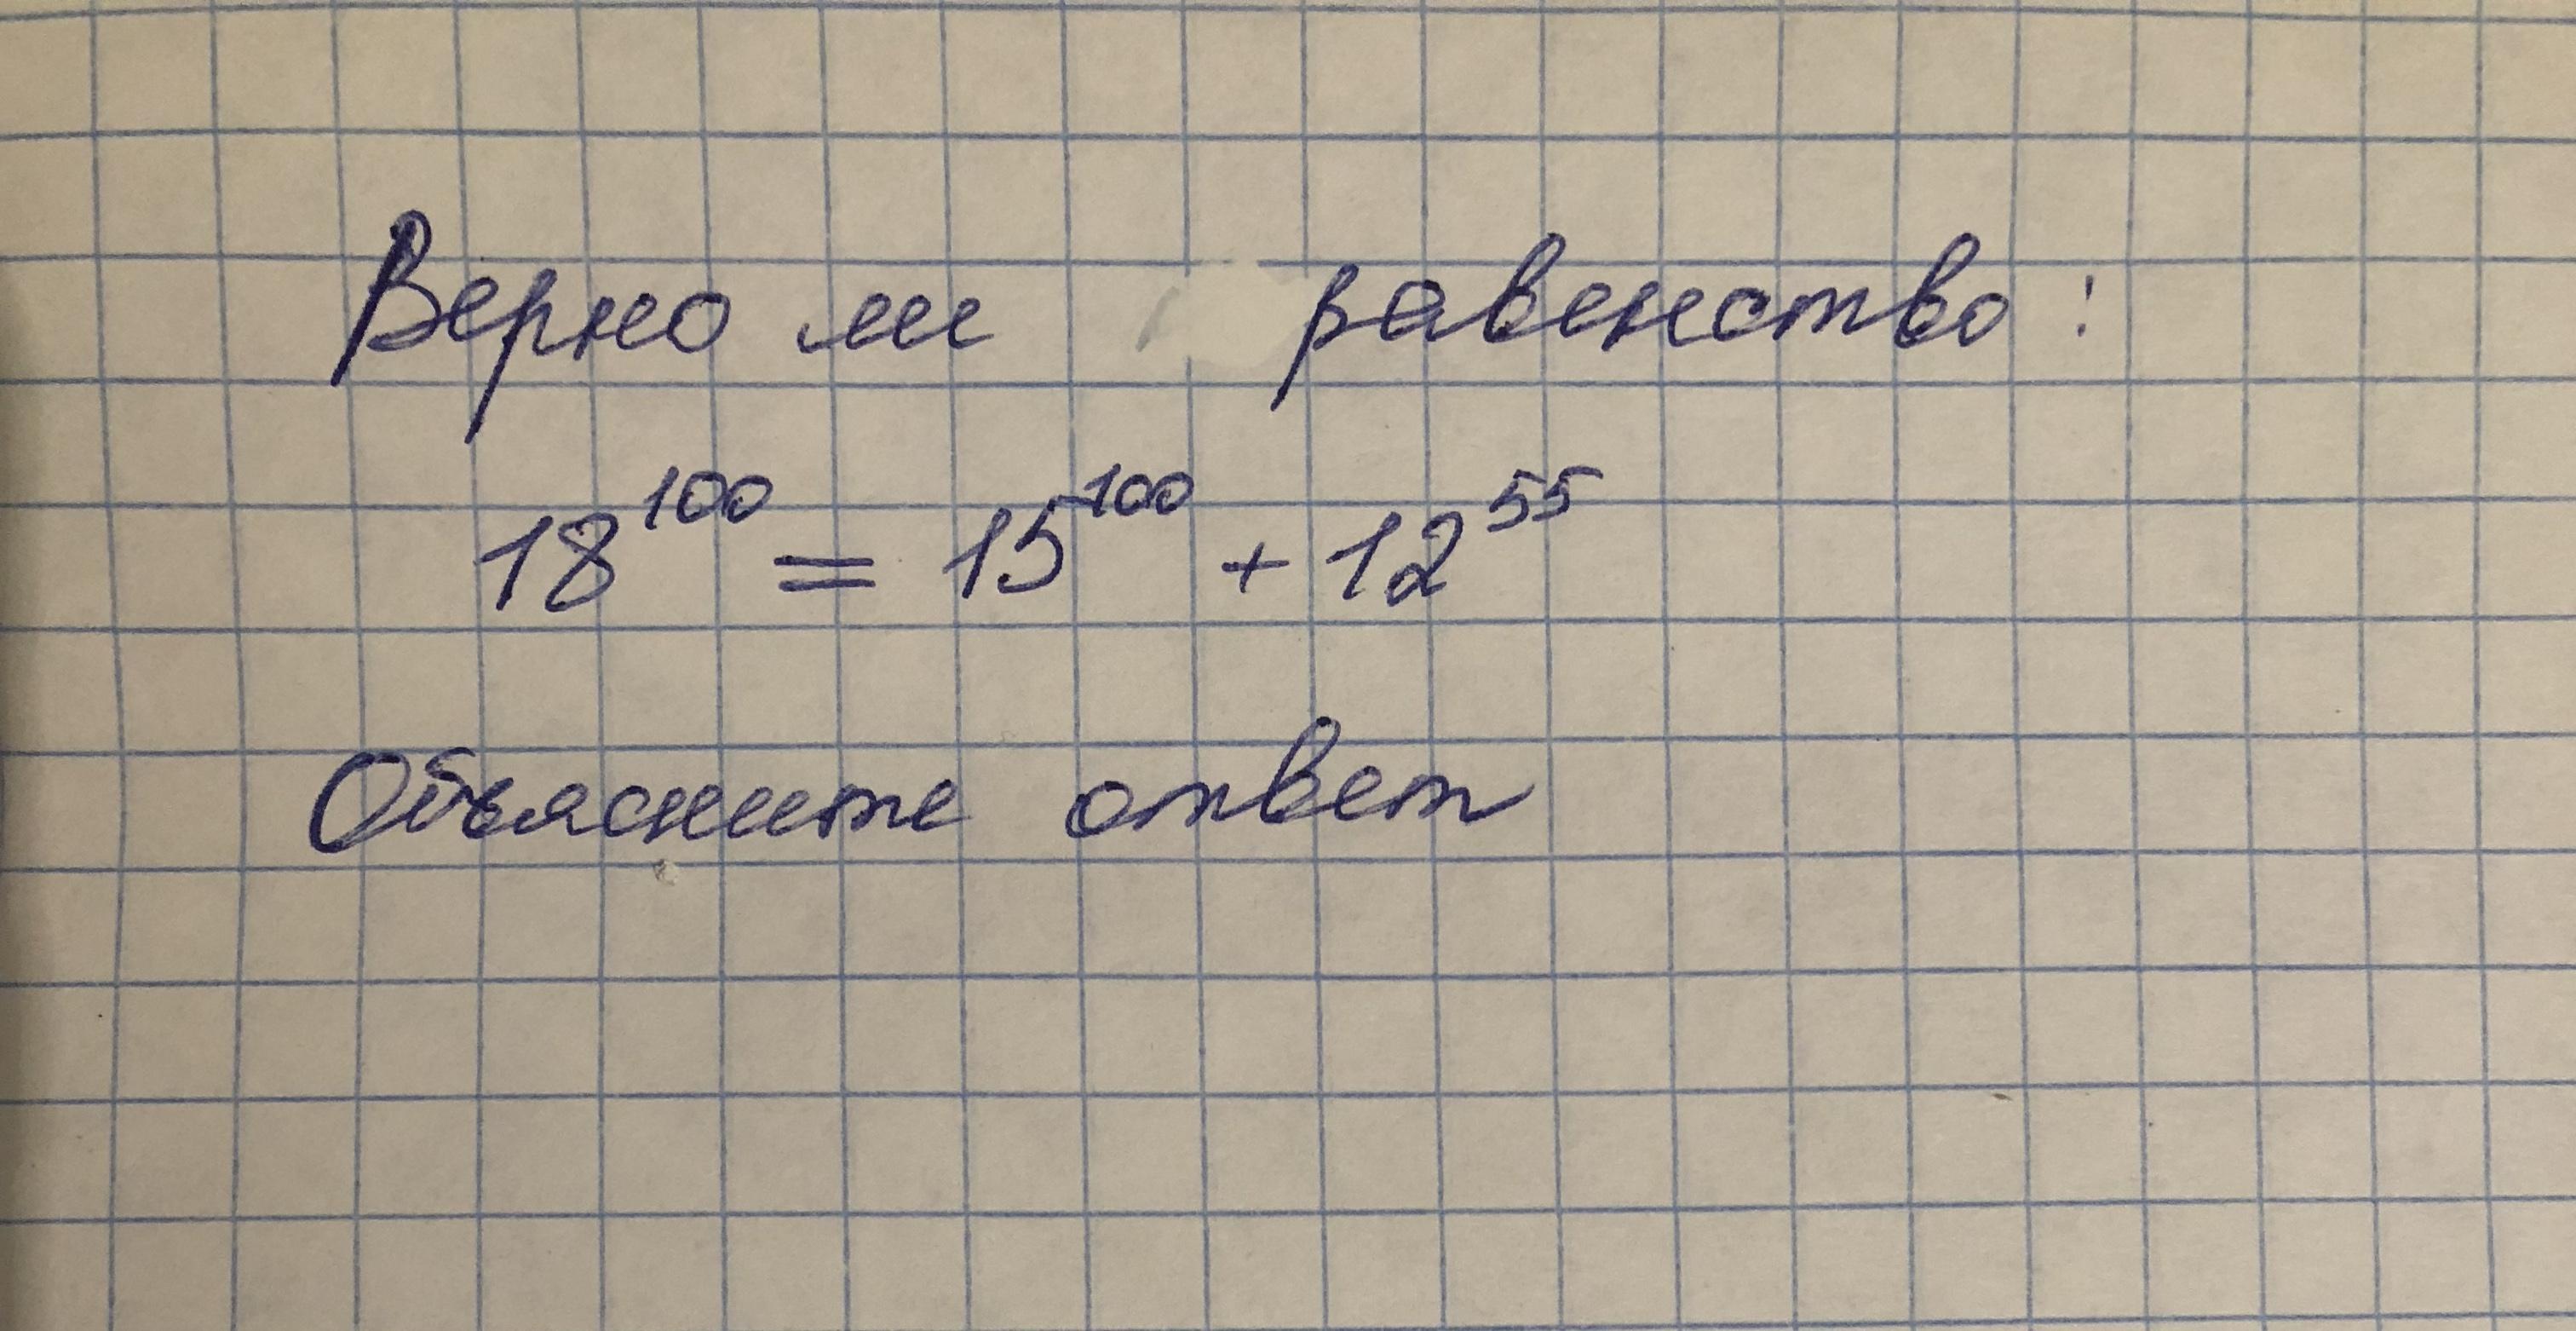 Верно ли равенство:
18^100 = 15^100 + 12^55
Объясните ответ